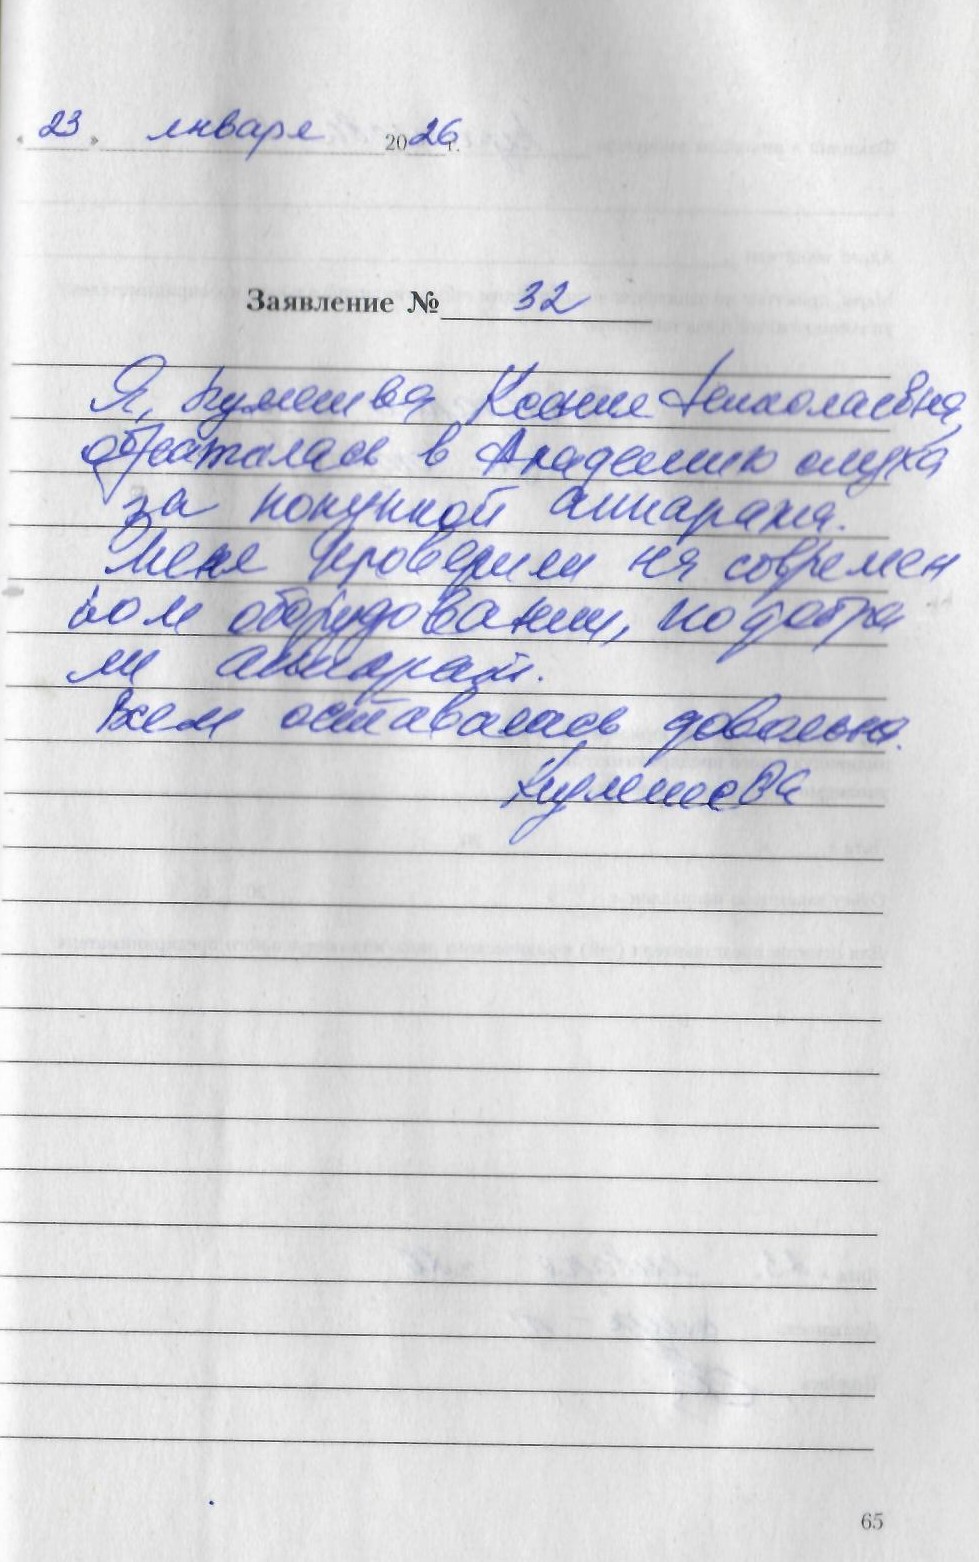 «23» января 2026 г.
Заявление № 32
Я, Кулешова Ксения Николаевна,
обращалась в Академию слуха
за покупкой аппарата.
Меня проверили на современ
ном оборудовании, подобра
ли аппарат.
Всем оставалась довольна.
Кулешова
65